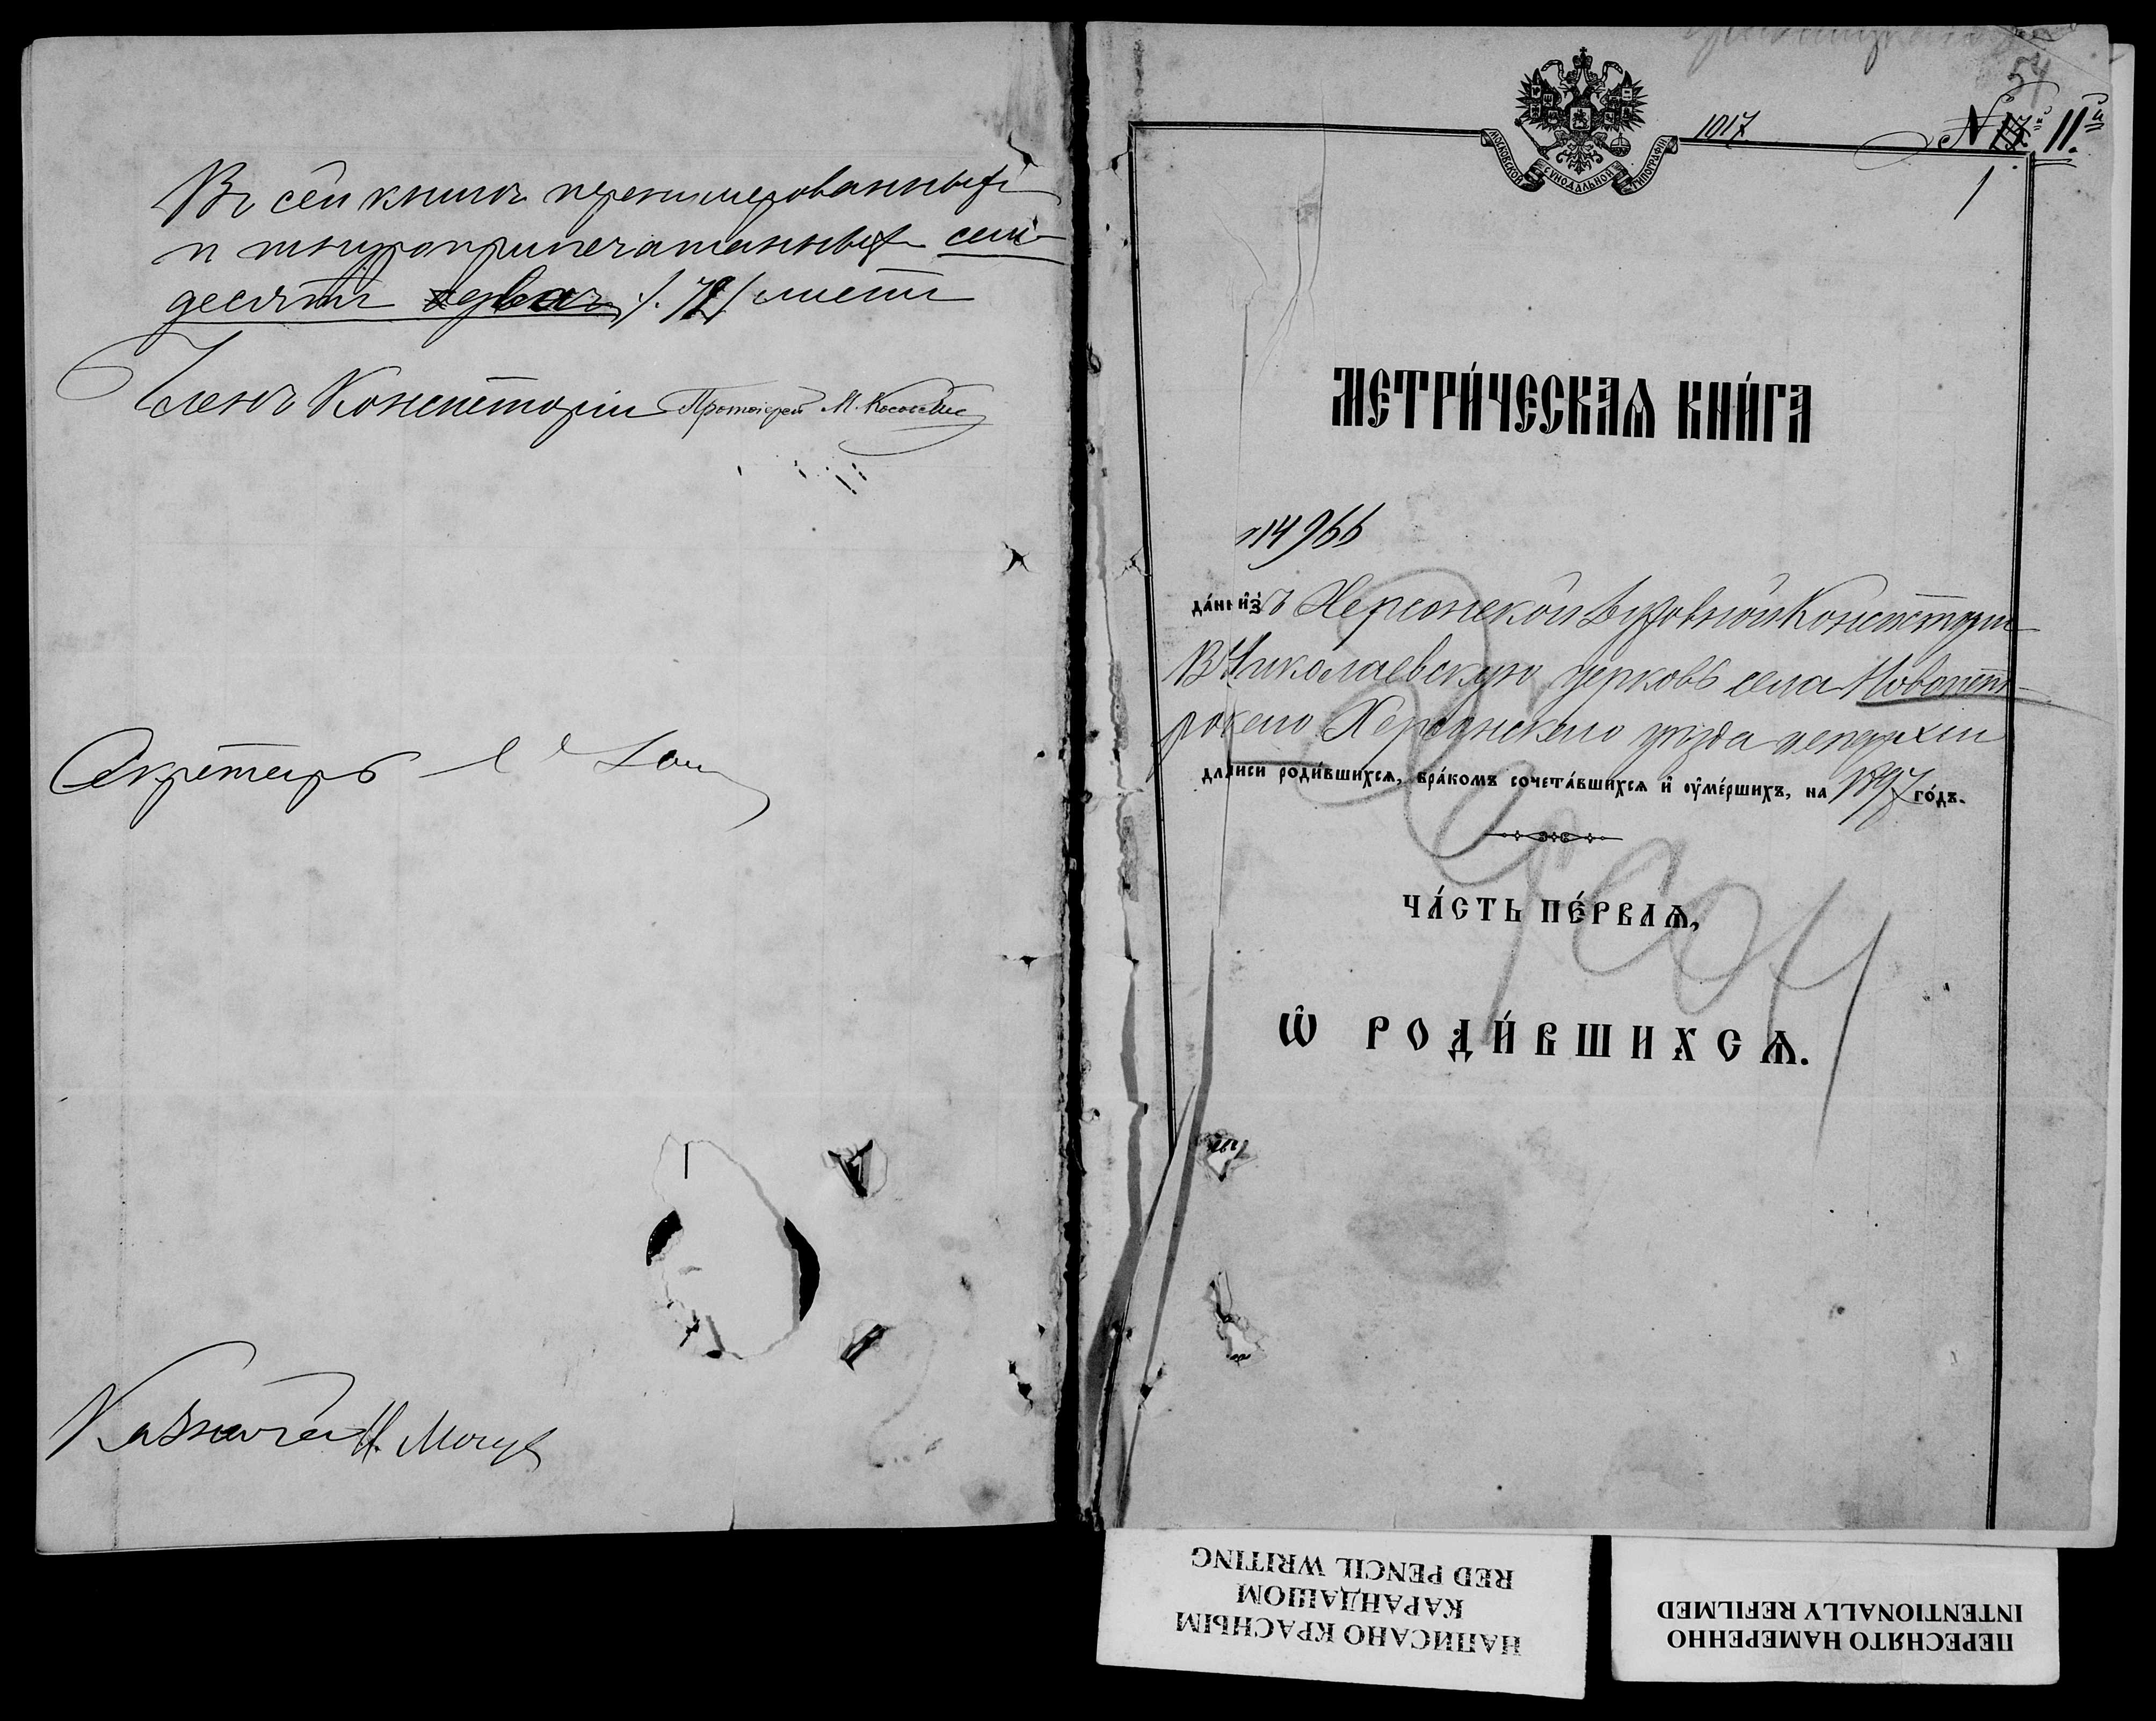 Въ сей книгѣ пренумерованныхъ
и шнуроприпечатанныхъ семь-
десятъ два /.72/ листъ
Членъ Консисторіи Протоіерей М.
Секретарь
Казначей И.
54
МОСКОВСКОЙ СѴНОДАЛЬНОЙ ТИПОГРАФІИ
1017
N 11й
1
МЕТРИ́ЧЕСКАѦ КНИ́ГА
№14966
да́на и҆зъ Херсонской Духовной Консисторіи
въ Николаевскую церковь села Новопет-
ровскаго Херсонскаго уѣзда и епархіи
для записи роди́вшихсѧ, бра́комъ сочета́вшихсѧ и҆ оу҆ме́ршихъ, на 1897 го́дъ.
ЧА́СТЬ ПЕ́РВАѦ,
Ѡ҆ РОДИ́ВШИХСѦ.
НАПИСАНО КРАСНЫМ
КАРАНДАШОМ
RED PENCIL WRITING
ПЕРЕСНЯТО НАМЕРЕННО
INTENTIONALLY REFILMED